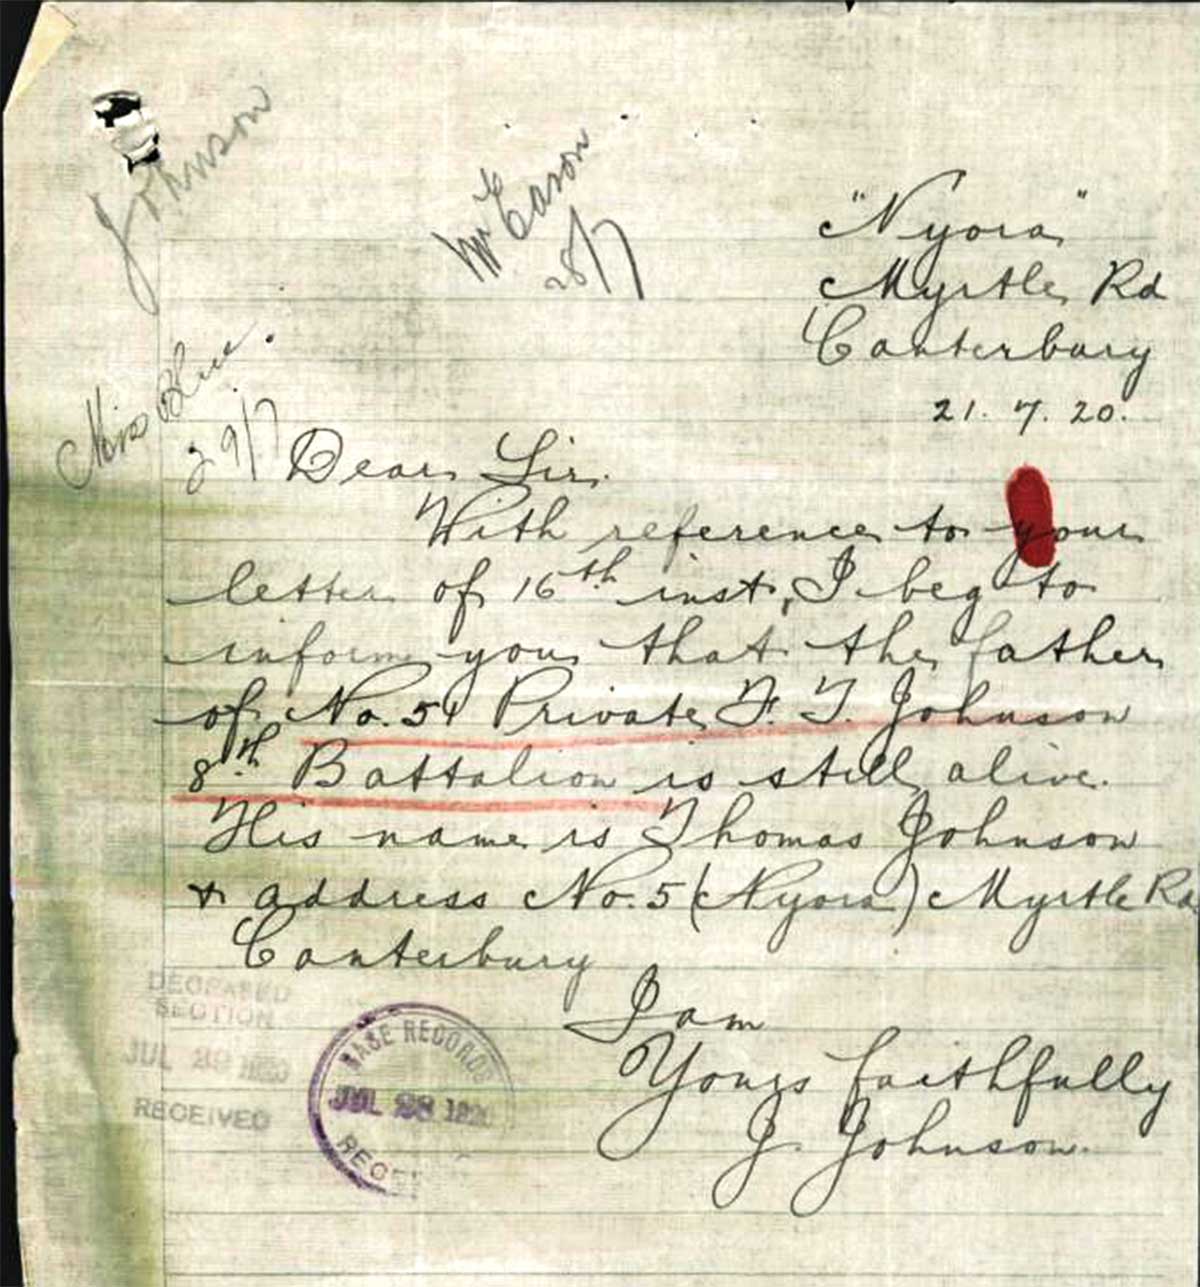 Johnson
Mr Eason
28/7
"Nyora"
Myrtle Rd
Canterbury
21. 7. 20.
Miss Blue.
29/7
Dear Sir.
With reference to your
letter of 16th inst, I beg to
inform you that the father
of No. 51 Private F. T. Johnson
8th Battalion is still alive.
His name is Thomas Johnson
& address No. 5 (Nyora) Myrtle Rd
Canterbury
I am
Yours faithfully
J. Johnson.
DECEASED
SECTION
JUL 28 1920
RECEIVED
BASE RECORDS
JUL 28 1920